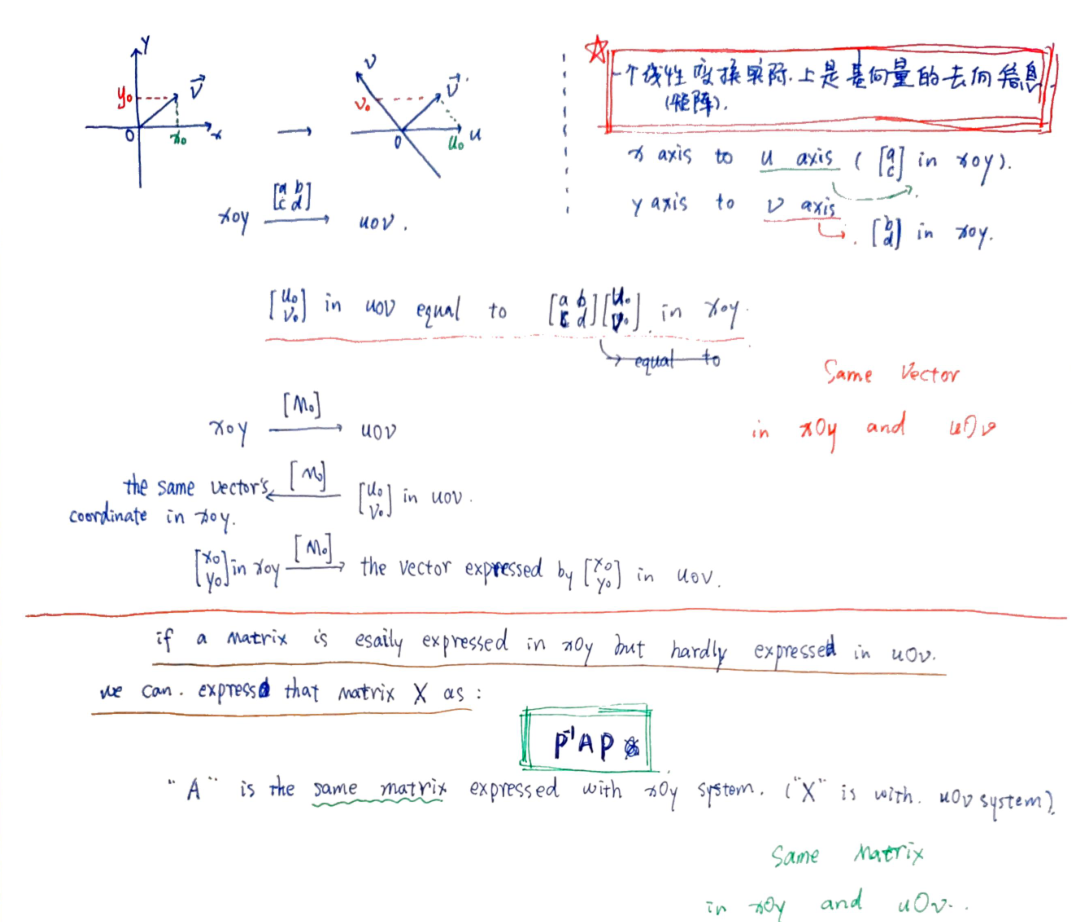 y
y₀
v⃗
0
x₀
x
→
v
v₀
v⃗
0
u₀
u
xoy [a b; c d] → uov.
☆ 一个线性变换实际上是基向量的去向信息
(矩阵).
x axis to u axis ( [a; c] in xoy).
y axis to v axis
[b; d] in xoy.
[u₀; v₀] in uov equal to [a b; c d][u₀; v₀] in xoy.
equal to
Same Vector
in xOy and uOv
xoy [M₀] → uov
the same vector's ← [M₀] [u₀; v₀] in uov.
coordinate in xoy.
[x₀; y₀] in xoy [M₀] → the vector expressed by [x₀; y₀] in uov.
if a matrix is esaily expressed in xOy but hardly expressed in uOv.
we can. express that matrix X as :
P⁻¹AP
"A" is the same matrix expressed with xOy system. ("X" is with. uOv system).
Same Matrix
in xOy and uOv..